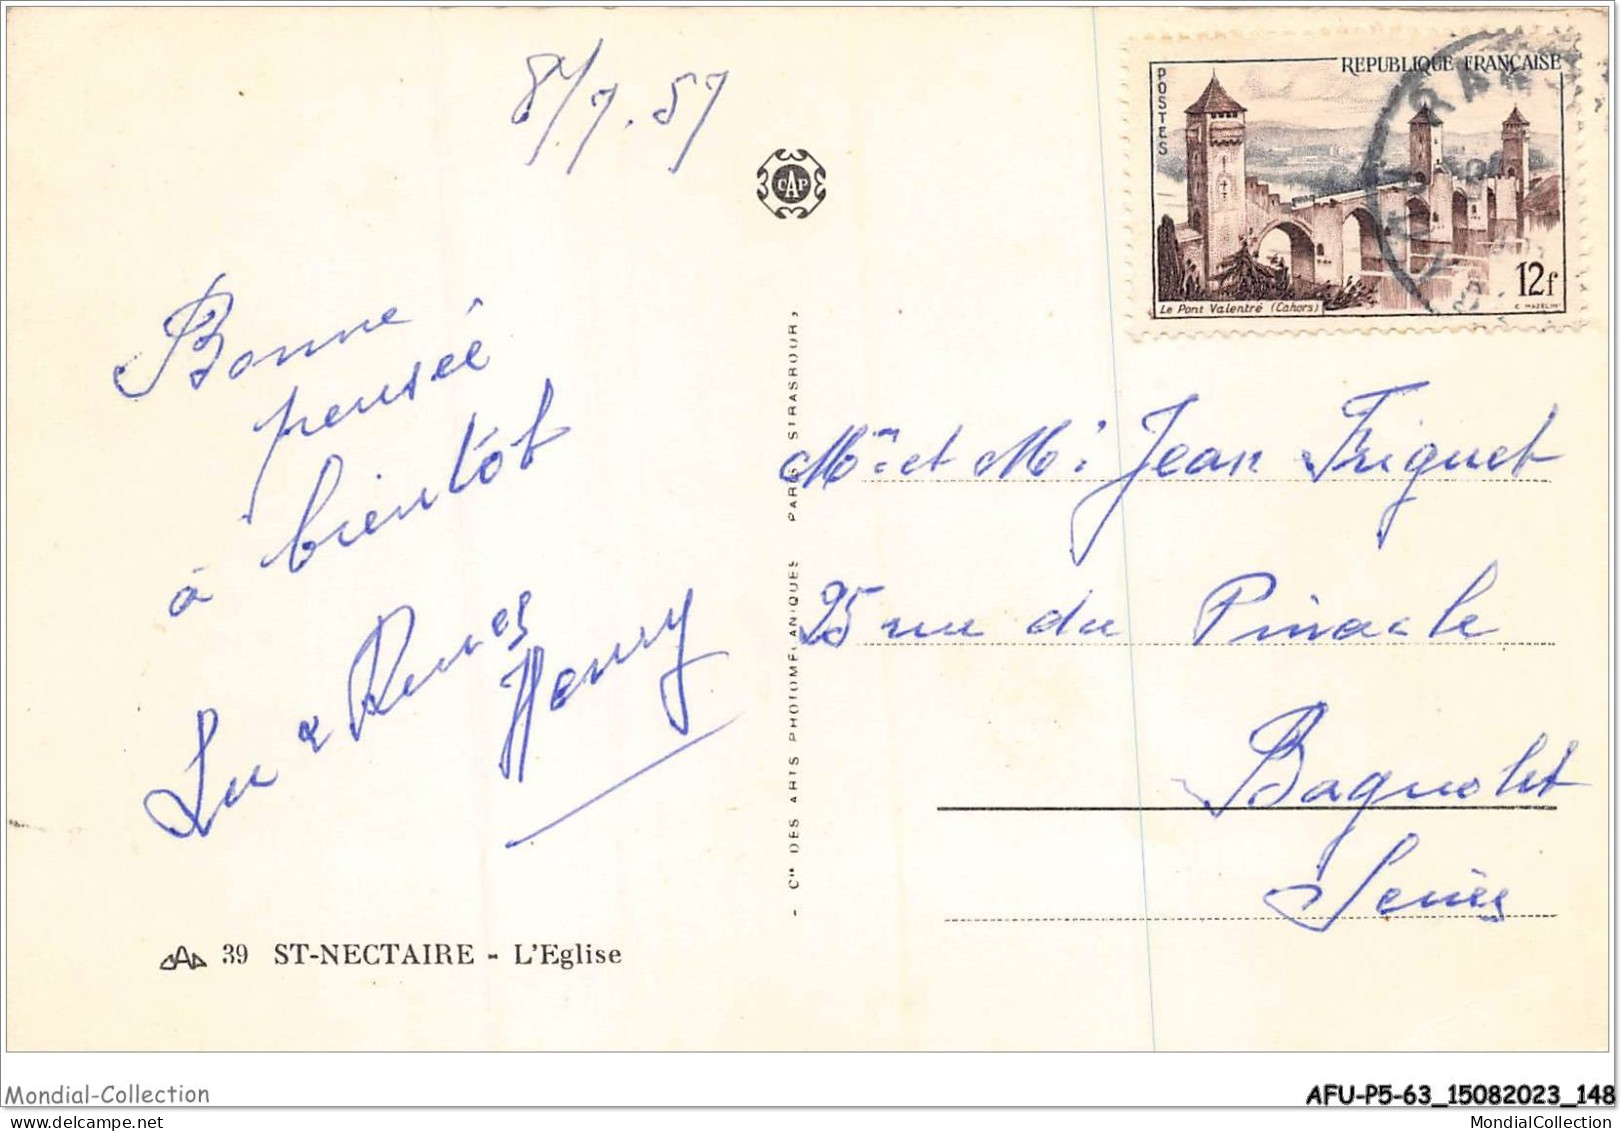 8/7.57
CAP
Bonne
pensée
à bientôt
Henry
39 ST-NECTAIRE - L'Eglise
- Cie DES ARTS PHOTOMÉCANIQUES PARIS STRASBOURG
REPUBLIQUE FRANÇAISE
POSTES
12f
Le Pont Valentré (Cahors)
Mme et Mr Jean Friquet
25 rue du Pinacle
Bagnolet
Seine
Mondial-Collection
AFU-P5-63_15082023_148
MondialCollection